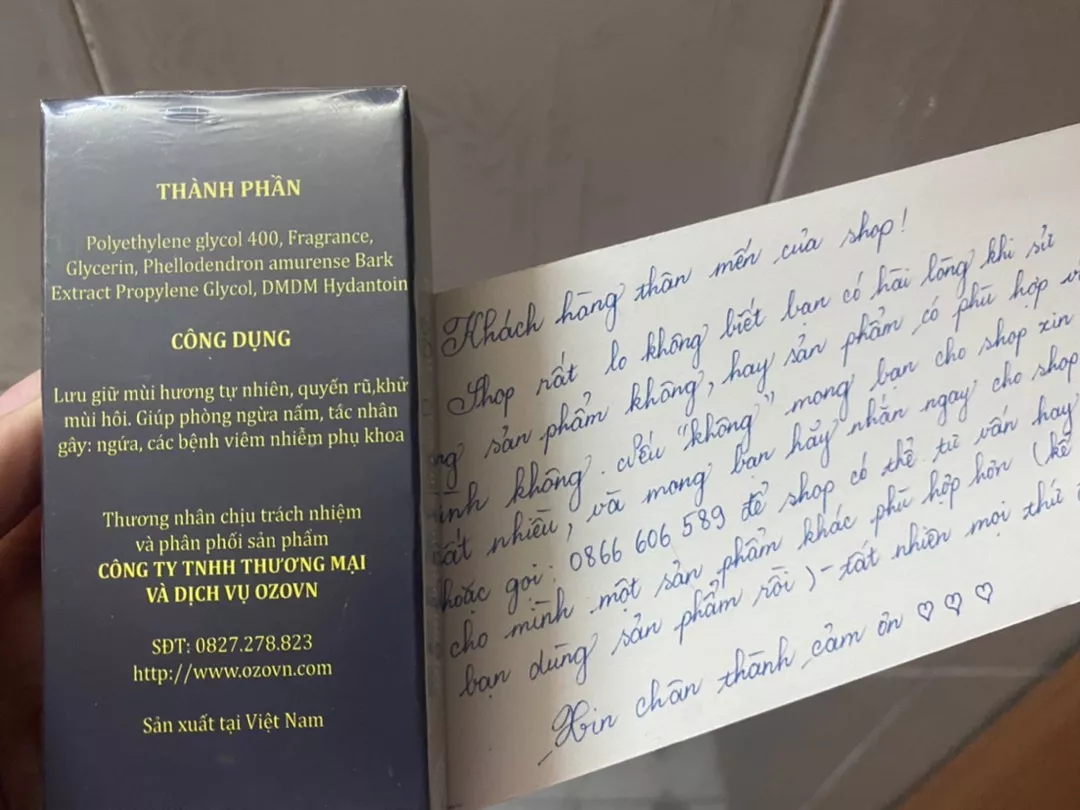 THÀNH PHẦN
Polyethylene glycol 400, Fragrance,
Glycerin, Phellodendron amurense Bark
Extract Propylene Glycol, DMDM Hydantoin
CÔNG DỤNG
Lưu giữ mùi hương tự nhiên, quyến rũ,khử
mùi hôi. Giúp phòng ngừa nấm, tác nhân
gây: ngứa, các bệnh viêm nhiễm phụ khoa
Thương nhân chịu trách nhiệm
và phân phối sản phẩm
CÔNG TY TNHH THƯƠNG MẠI
VÀ DỊCH VỤ OZOVN
SĐT: 0827.278.823
http://www.ozovn.com
Sản xuất tại Việt Nam
Khách hàng thân mến của shop!
Shop rất lo không biết bạn có hài lòng khi sử
sản phẩm không, hay sản phẩm có phù hợp
không. Nếu "không" mong bạn cho shop xin
nhiều, và mong bạn hãy nhắn ngay cho shop
hoặc gọi: 0866 606 589 để shop có thể tư vấn hay
cho mình một sản phẩm khác phù hợp hơn (kể
bạn dùng sản phẩm rồi) - tất nhiên mọi thứ
Xin chân thành cảm ơn ♡ ♡ ♡